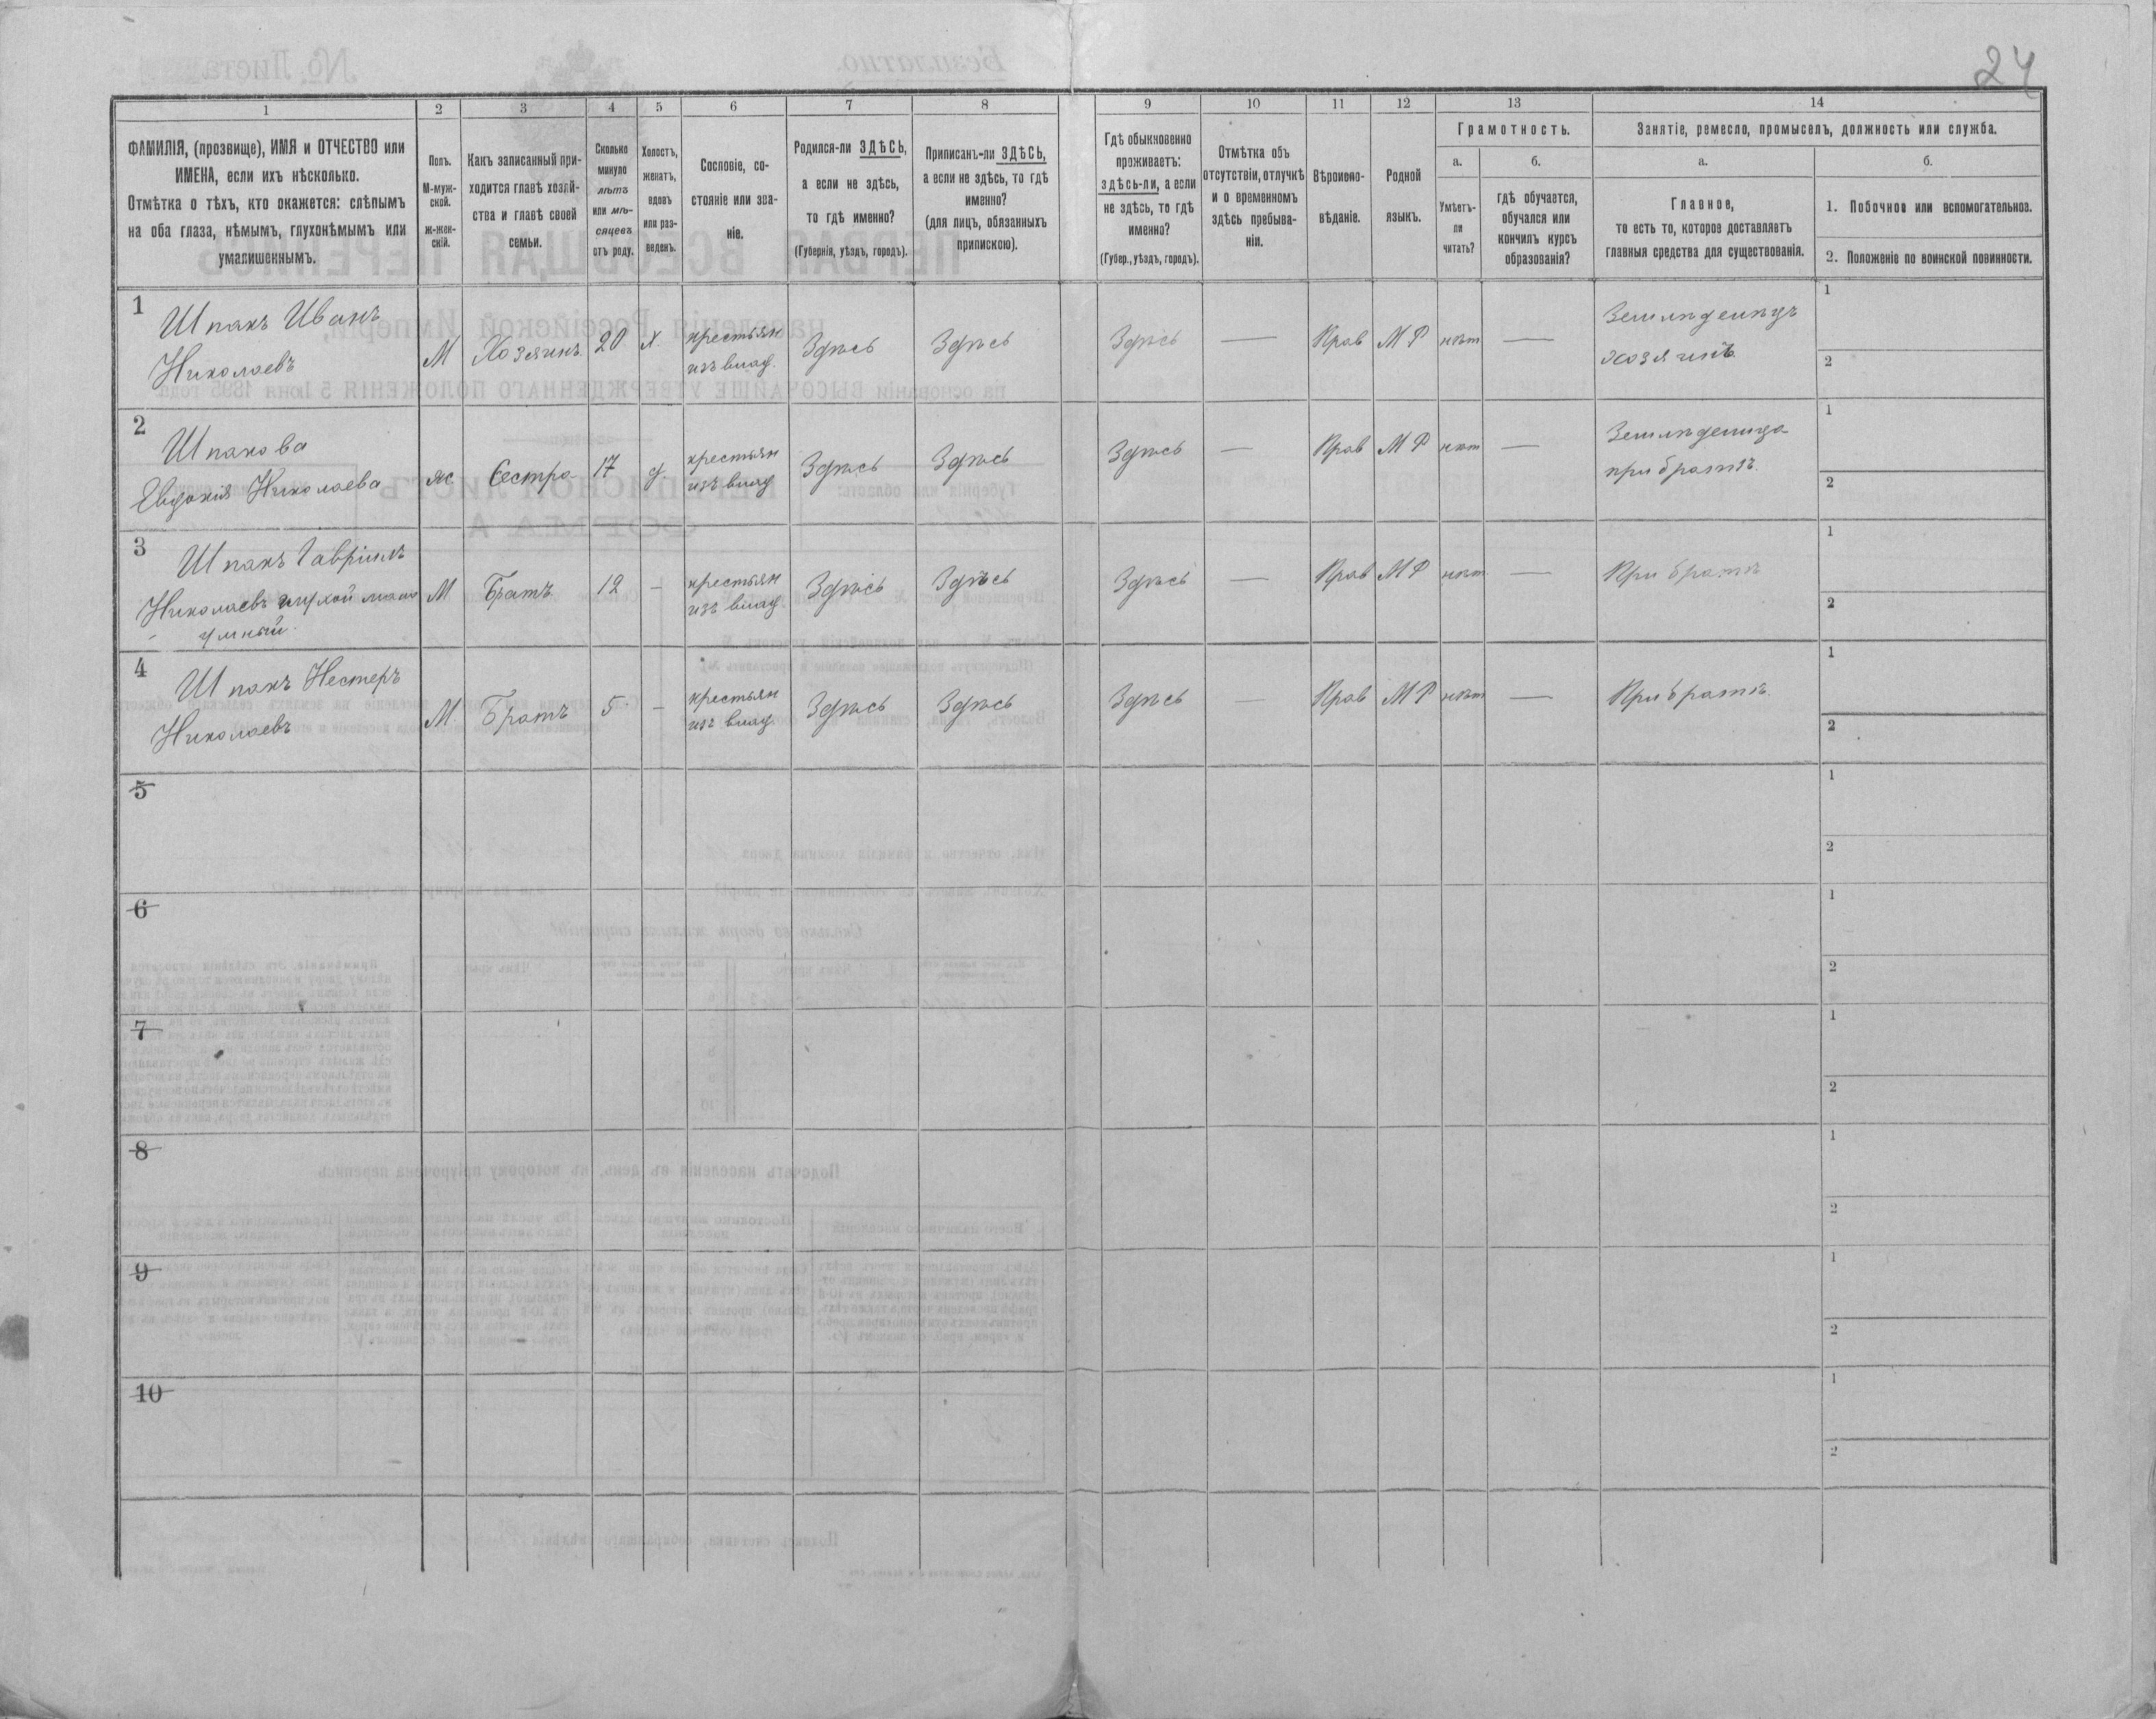 24
1 2 3 4 5 6 7 8 9 10 11 12 13 14
ФАМИЛІЯ, (прозвище), ИМЯ и ОТЧЕСТВО или
ИМЕНА, если ихъ нѣсколько.
Отмѣтка о тѣхъ, кто окажется: слѣпымъ
на оба глаза, нѣмымъ, глухонѣмымъ или
умалишеннымъ.
Полъ.
М-муж-
ской.
ж-жен-
скій.
Какъ записанный при-
ходится главѣ хозяй-
ства и главѣ своей
семьи.
Сколько
минуло
лѣтъ
или мѣ-
сяцевъ
отъ роду.
Холостъ,
женатъ,
вдовъ
или раз-
веденъ.
Сословіе, со-
стояніе или зва-
ніе.
Родился-ли ЗДѢСЬ,
а если не здѣсь,
то гдѣ именно?
(Губернія, уѣздъ, городъ).
Приписанъ-ли ЗДѢСЬ,
а если не здѣсь, то гдѣ
именно?
(для лицъ, обязанныхъ
припискою).
Гдѣ обыкновенно
проживаетъ:
здѣсь-ли, а если
не здѣсь, то гдѣ
именно?
(Губер., уѣздъ, городъ).
Отмѣтка объ
отсутствіи, отлучкѣ
и о временномъ
здѣсь пребыва-
ніи.
Вѣроиспо-
вѣданіе.
Родной
языкъ.
Грамотность.
а.
Умѣетъ-
ли
читать?
б.
гдѣ обучается,
обучался или
кончилъ курсъ
образованія?
Занятіе, ремесло, промыселъ, должность или служба.
а.
Главное,
то есть то, которое доставляетъ
главныя средства для существованія.
б.
1. Побочное или вспомогательное.
2. Положеніе по воинской повинности.
1 Шпакъ Иванъ
Николаевъ
М Хозяинъ 20 х крестьян
изъ влад.
Здѣсь Здѣсь Здѣсь — Прав МР нѣт —
Земледелецъ
хозяинъ
1
2
2 Шпакова
Евдокія Николаева
ж Сестра 17 д. крестьян
изъ влад
Здѣсь Здѣсь Здѣсь — Прав МР нѣт —
Земледелица
при братѣ
1
2
3 Шпакъ Гавріилъ
Николаевъ глухой мало
умный
М Братъ 12 — крестьян
изъ влад.
Здѣсь Здѣсь Здѣсь — Прав МР нѣт —
При братѣ
1
2
4 Шпакъ Нестеръ
Николаевъ
М Братъ 5 — крестьян
изъ влад
Здѣсь Здѣсь Здѣсь — Прав МР нѣт —
При братѣ
1
2
5
1
2
6
1
2
7
1
2
8
1
2
9
1
2
10
1
2